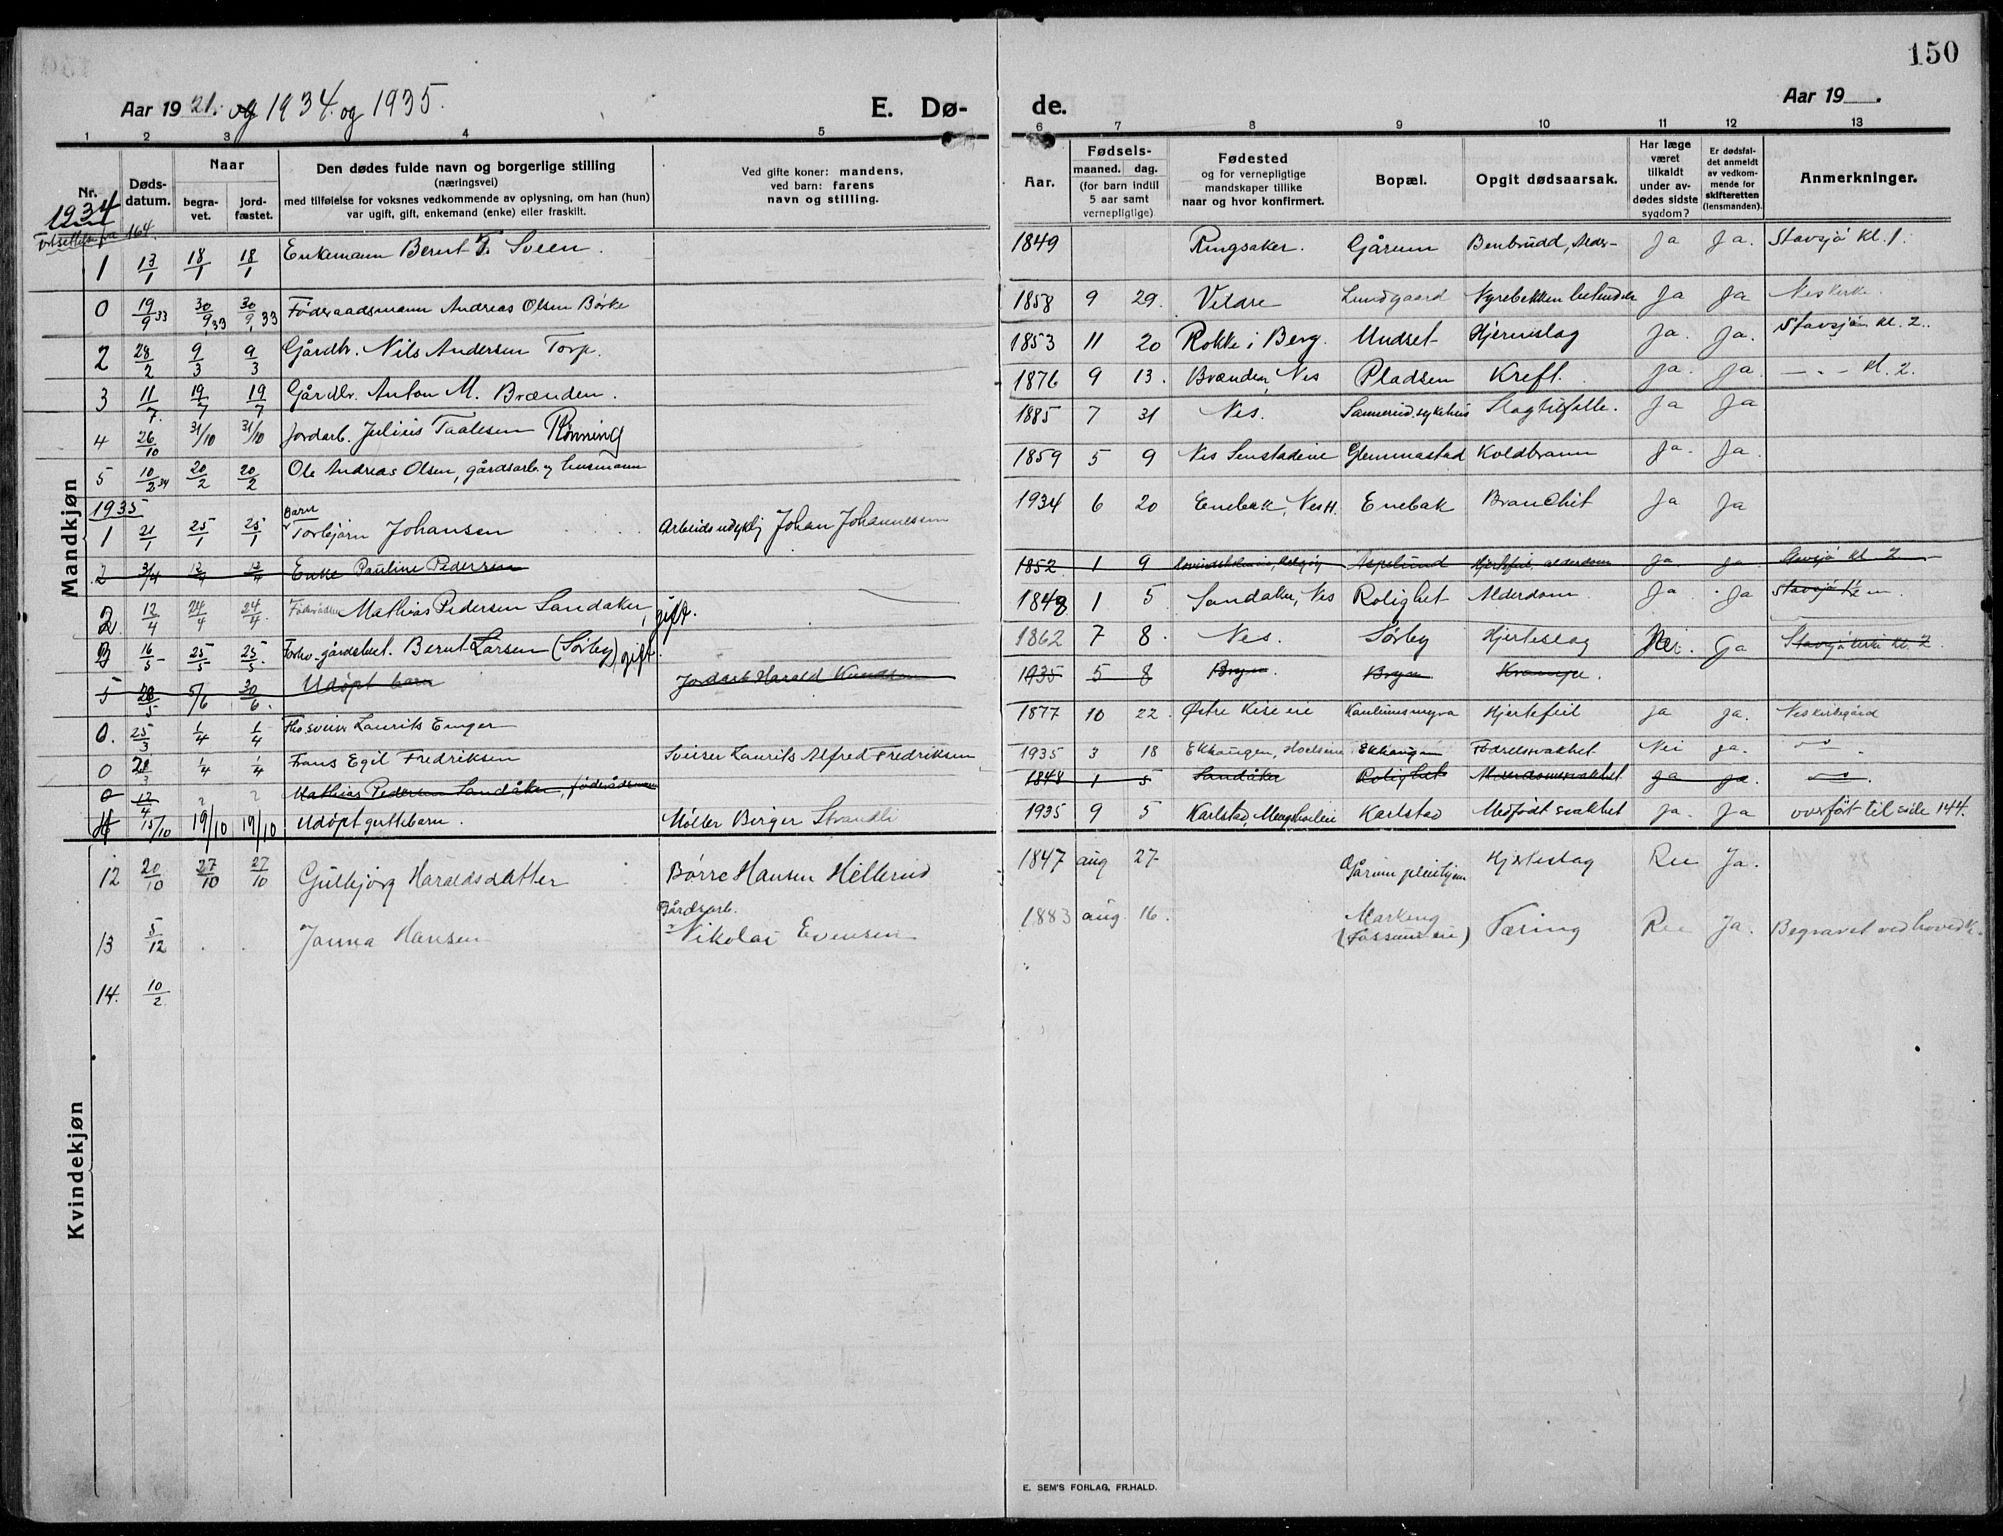 150
Aar 19 21. og 1934. og 1935.
E. Dø-
de.
Aar 19 .
1 2 3 4 5 6 7 8 9 10 11 12 13
Nr.
Døds-
datum.
Naar
begra-
vet.
jord-
fæstet.
Den dødes fulde navn og borgerlige stilling
(næringsvei)
med tilføielse for voksnes vedkommende av oplysning, om han (hun)
var ugift, gift, enkemand (enke) eller fraskilt.
Ved gifte koner: mandens,
ved barn: farens
navn og stilling.
Aar.
Fødsels-
maaned. dag.
(for barn indtil
5 aar samt
vernepligtige)
Fødested
og for vernepligtige
mandskaper tillike
naar og hvor konfirmert.
Bopæl.
Opgit dødsaarsak.
Har læge
været
tilkaldt
under av-
dødes sidste
sygdom?
Er dødsfal-
det anmeldt
av vedkom-
mende for
skifteretten
(lensmanden).
Anmerkninger.
1934
164
Mandkjøn
1 13/1 18/1 18/1 Enkemann Bernt T. Sveen. 1849 Ringsaker. Gårum Benbrudd, Alder- Ja Ja. Stavsjø kl. 1.
0 19/9 33 30/9 33 30/9 33 Føderaadsmann Andreas Olsen Børke 1858 9 29. Veldre Lundgaard Nyrebekken betendelse Ja Ja Nes kirke.
2 28/2 9/3 9/3 Gårdbr. Nils Andersen Torp. 1853 11 20 Rokke i Berg. Undset Hjerneslag Ja. Ja. Stavsjø kl. 2.
3 11/7. 19/7 19/7 Gårdbr. Anton M. Brænden. 1876 9 13. Brænden, Nes Pladsen Kreft. Ja. Ja. - " - kl. 2.
4 26/10 31/10 31/10 Jordarb. Julius Taalesen Rønning 1885 7 31 Nes. Sannerud sykehus Slagtilfelle. Ja Ja
5 10/2 34 20/2 20/2 Ole Andreas Olsen, gårdsarb. og husmann 1859 5 9 Nes Glemmastad Koldbrann Ja. Ja.
1935
1 21/1 25/1 25/1 Barn Torbjørn Johansen Arbeidsudyktig Johan Johannessen 1934 6 20 Enebak, Nes H. Enebak Bronchit Ja Ja
2 3/4 12/4 12/4 Enke Pauline Pedersen 1852 1 9 Aspelund Hjertefeil, alderdom Ja. Ja. Stavsjø kl. 2
2 12/4 24/4 24/4. Mathias Pedersen Sandaker, gift. 1848 1 5 Sandaker, Nes Rolighet Alderdom Ja Ja
3 16/5 25/5 25/5. Forhv. gårdsbest. Bernt Larsen (Sørby) gift. 1862 7 8. Nes. Sørby Hjerteslag Nei. Ja Stavsjø kirke kl. 2.
5 28/5 5/6 30/6. Udøpt barn Jordarb. Harald Knudsen 1935 5 8 Bryn. Bryn Krampe
0. 25/3 1/4 1/4 Laurits Enger 1877 10 22 Østre Kise eie Hjertefeil Ja Ja. Nes kirkegård
0 21/3 1/4 1/4 Frans Egil Fredriksen Sveiser Laurits Alfred Fredriksen 1935 3 18 Ekhaugen, Ekhaugen Fødselssvakhet Nei Ja. - " -
0 12/4 ? ? Mathias Pedersen Sandåker, føderådsmann 1848 1 5 Sandåker Rolighet Ja Ja. - " -
15/10 19/10 19/10 Udøpt guttebarn. Møller Birger Strandli 1935 9 5 Karlstad, Karlstad Medfødt svakhet Ja. Ja overført til side 144.
Kvindekjøn
12 20/10 27/10 27/10 Gulbjørg Haraldsdatter Børre Hansen Hellerud 1847 aug 27. Gårum pleiehjem Hjerteslag Ja.
13 5/12 . . Janna Hansen Gårdsarb. Nikolai Evensen 1883 aug. 16. (Fossum eie) Tæring Ja. Begravet ved hovedk.
14. 10/2
E. SEM'S FORLAG, FR.HALD.